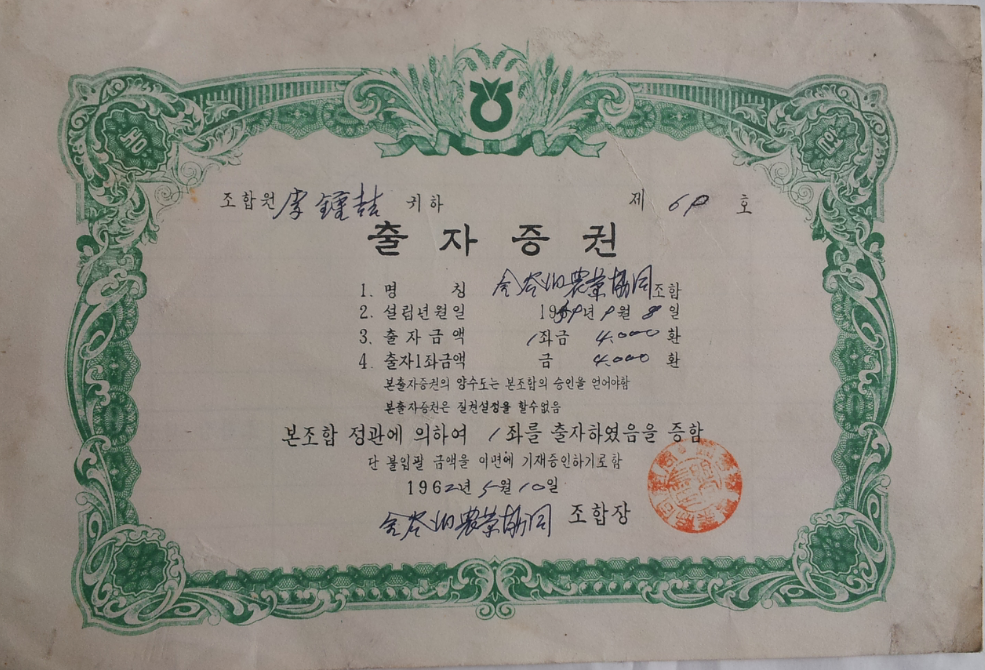 조합원 李鍾喆 귀하 제 69 호
출자증권
1. 명 칭 金谷里農業協同조합
2. 설립년월일 월 8일
3. 출자금액 1좌금 4,000 환
4. 출자1좌금액 금 4,000 환
본출자증권의 양수도는 본조합의 승인을 얻어야함
본출자증권은 질권설정을 할수없음
본조합 정관에 의하여 1좌를 출자하였음을 증함
단 불입필 금액을 이면에 기재증인하기로함
1962년 5월 10일
金谷里農業協同 조합장